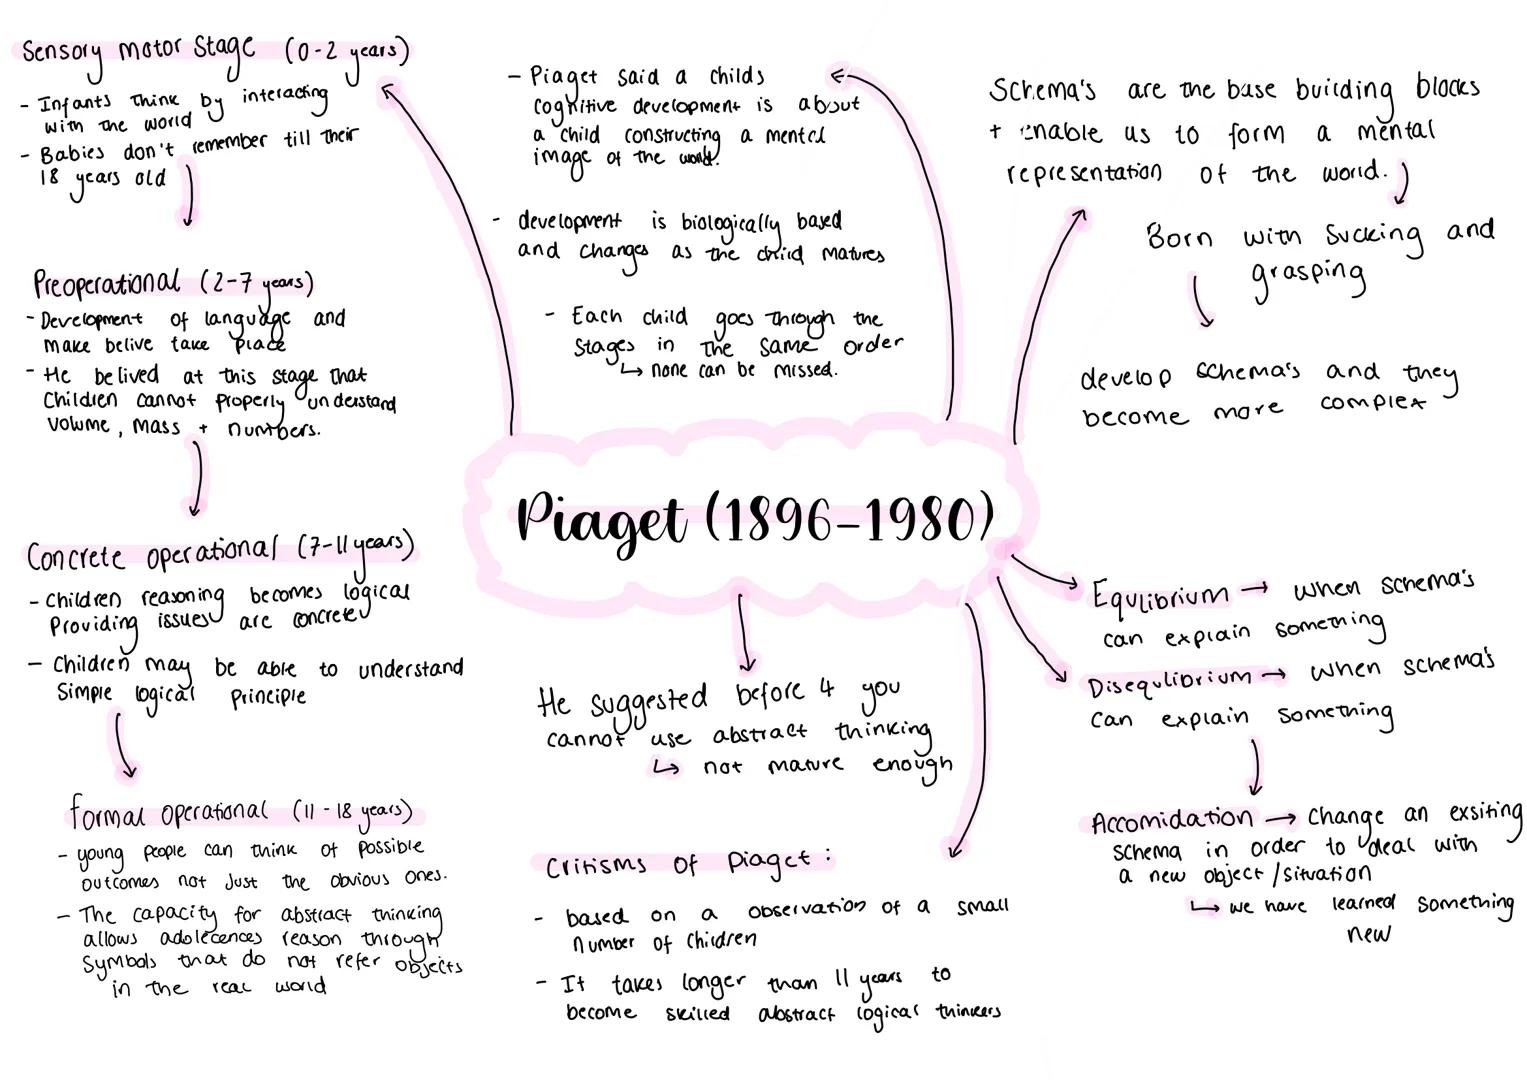 Sensory motor stage (0-2 years)
- Infants think by interacting
with the world
- Babies don't remember till their
18 years old
Preoperational (2-7 years)
- Development of language and
make belive take place
- He belived at this stage that
Children cannot properly understand
volume, mass + numbers.
Concrete operational (7-11 years)
- Children reasoning becomes logical
Providing issues are concrete
- Children may be able to understand
Simple logical principle
formal operational (11-18 years)
- young people can think of possible
outcomes not just the obvious ones.
- The capacity for abstract thinking
allows adolecences reason through
Symbols that do not refer objects
in the real world
- Piaget said a childs
cognitive development is about
a child constructing a mental
image of the world.
- development is biologically based
and changes as the child matures
- Each child goes through the
stages in the same order
↳ none can be missed.
Piaget (1896-1980)
He suggested before 4 you
cannot use abstract thinking
↳ not mature enough
Critisms of Piaget:
- based on a observation of a small
number of children
- It takes longer than 11 years to
become skilled abstract logical thinkers
Schema's are the base building blocks
+ enable us to form a mental
representation of the world.
Born with sucking and
grasping
develop schema's and they
become more complex
Equlibrium → when schema's
can explain something
Disequlibrium → when schema's
can explain something
Accomidation → change an exsiting
schema in order to deal with
a new object/situation
↳ we have learned something
new